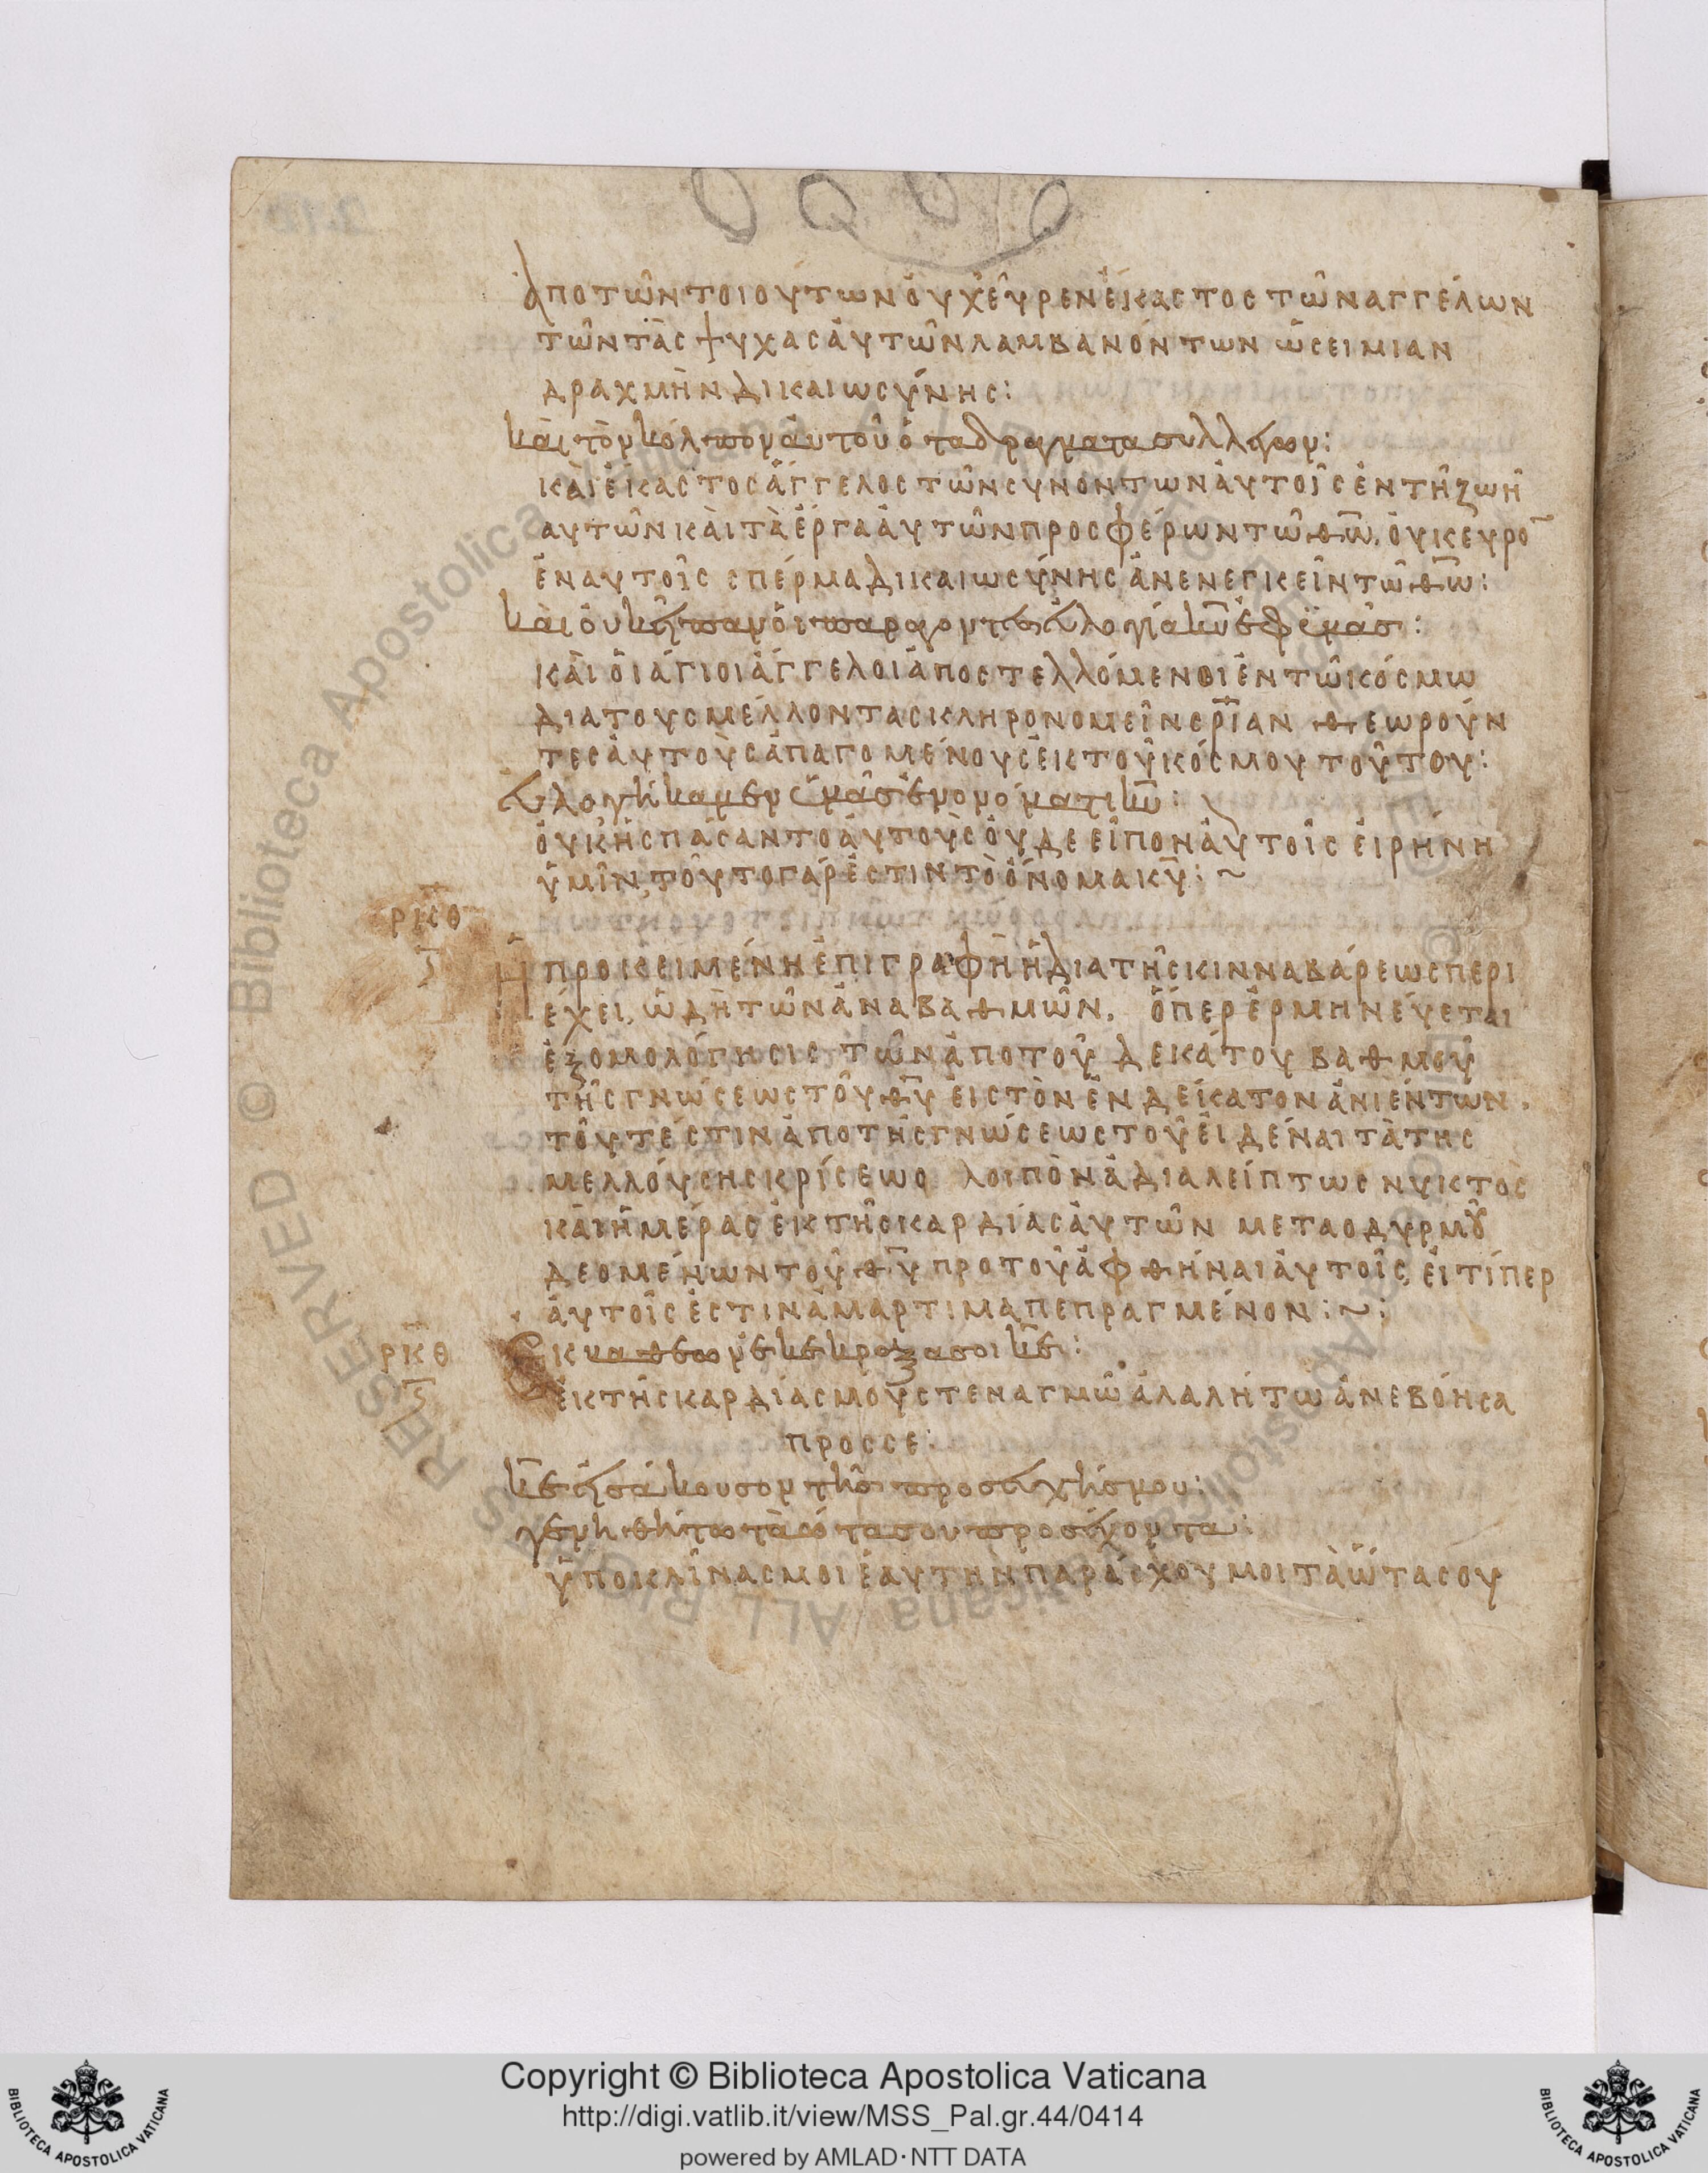 ἀπὸ τῶν τοιούτων οὐχ εὗρεν ἕκαστος τῶν ἀγγέλων
τῶν τὰς ψυχὰς αὐτῶν λαμβανόντων ὡσεὶ μίαν
δραχμὴν δικαιωσύνης:
καὶ τὸν κόλπον αὐτοῦ ὁ τα δραγματα συλλέγων:
καὶ ἕκαστος ἄγγελος τῶν συνόντων αὐτοῖς ἐν τῆ ζωῆ
αυτῶν καὶ τὰ ἔργα αὐτῶν προσφέρων τῶ θ̅ω̅, οὐκ εὗρο̅
ἐν αυτοῖς σπέρμα δικαιωσύνης ἀνενεγκεῖν τῶ θ̅ω̅:
καὶ οὐκ εἶπαν οἱ παραγοντες εὐλογία κ̅υ̅ ἐφ ὑμᾶς:
καὶ οἱ ἅγιοι ἄγγελοι ἀποστελλόμενοι ἐν τῶ κόσμω
δια τους μέλλοντας κληρονομεῖν σ̅ρ̅ι̅αν θεωροῦν
τες αὐτοὺς ἀπαγομένους ἐκ τοῦ κόσμου τούτου:
εὐλογήκαμεν ὑμᾶς ἐν ονόματι κ̅υ̅:
οὐκ ἠσπάσαντο αὐτοὺς οὐδε εἶπον αὐτοῖς εἰρήνη
ὑμῖν, τοῦτο γάρ ἐστιν τὸ ὄνομα κ̅υ̅: ~
ρκθ
ϛ
Ἡ προκειμένη ἐπιγραφὴ ἡ δια τῆς κινναβάρεως περι
έχει, ὠδὴ τῶν ἀναβαθμῶν. ὅπερ ἑρμηνεύεται
ἐξομολόγησις τῶν ἀπο τοῦ δεκάτου βαθμοῦ
τῆς γνώσεως τοῦ θ̅υ̅ εἰς τὸν ἑνδείκατον ἀνιέντων.
τοῦτέστιν ἀπο τῆς γνώσεως τοῦ εἰδέναι τὰ τῆς
μελλούσης κρίσεως λοιπὸν ἀδιαλείπτως νυκτὸς
καὶ ἡμέρας ἐκ τῆς καρδίας αὐτῶν μετα οδυρμοῦ
δεομένων τοῦ θ̅υ̅ προ τοῦ ἀφθῆναι αὐτοῖς, εἰ τί περ
αὐτοῖς ἐστιν ἁμάρτιμα πεπραγμένον: ~:
ρκθ
ϛ
Εκ βαθεων ἐκεκροξα σοι κ̅ε̅:
ἐκ τῆς καρδίας μου στεναγμῶ ἀλαλήτω ἀνεβόησα
προς σε:
κ̅ε̅ εἰσάκουσον τῆς προσευχῆς μου:
γενηθήτω τὰ ὦτα σου προσέχοντα:
ὑποκλῖνας μοι ἑαυτὴν παράσχου μοι τὰ ὦτα σου
Copyright © Biblioteca Apostolica Vaticana
http://digi.vatlib.it/view/MSS_Pal.gr.44/0414
powered by AMLAD·NTT DATA